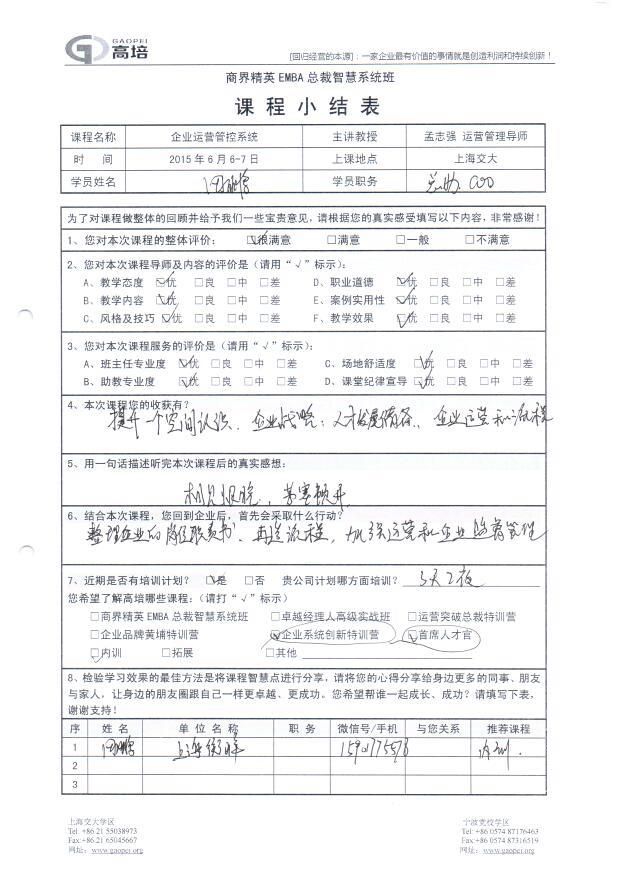 GAOPEI
高培
[回归经营的本源]：一家企业最有价值的事情就是创造利润和持续创新！
商界精英 EMBA 总裁智慧系统班
课 程 小 结 表
课程名称 企业运营管控系统 主讲教授 孟志强 运营管理导师
时 间 2015 年 6 月 6-7 日 上课地点 上海交大
学员姓名 学员职务 总助 COO
为了对课程做整体的回顾并给予我们一些宝贵意见，请根据您的真实感受填写以下内容，非常感谢！
1、您对本次课程的整体评价： ☑很满意 □满意 □一般 □不满意
2、您对本次课程导师及内容的评价是（请用“√”标示）：
A、教学态度 ☑优 □良 □中 □差 D、职业道德 ☑优 □良 □中 □差
B、教学内容 ☑优 □良 □中 □差 E、案例实用性 ☑优 □良 □中 □差
C、风格及技巧 ☑优 □良 □中 □差 F、教学效果 ☑优 □良 □中 □差
3、您对本次课程服务的评价是（请用“√”标示）：
A、班主任专业度 ☑优 □良 □中 □差 C、场地舒适度 ☑优 □良 □中 □差
B、助教专业度 ☑优 □良 □中 □差 D、课堂纪律宣导 ☑优 □良 □中 □差
4、本次课程您的收获有？
提升一个空间认识、企业战略；人才发展储备、企业运营和流程
5、用一句话描述听完本次课程后的真实感想：
相见恨晚，茅塞顿开
6、结合本次课程，您回到企业后，首先会采取什么行动？
整理企业的岗位职责书、再造流程，加强运营和企业监督管理
7、近期是否有培训计划？ ☑是 □否 贵公司计划哪方面培训？ 3天2夜
您希望了解高培哪些课程：（请打“√”标示）
□商界精英 EMBA 总裁智慧系统班 □卓越经理人高级实战班 □运营突破总裁特训营
□企业品牌黄埔特训营 ☑企业系统创新特训营 ☑首席人才官
☑内训 □拓展 □其他
8、检验学习效果的最佳方法是将课程智慧点进行分享，请将您的心得分享给身边更多的同事、朋友
与家人，让身边的朋友圈跟自己一样更卓越、更成功。您希望帮谁一起成长、成功？请填写下表，
谢谢支持！
序 姓 名 单 位 名 称 职 务 微信号/手机 与您关系 推荐课程
1 内训.
2
3
上海交大学区 宁波党校学区
Tel: +86 21 55038973 Tel: +86 0574 87176463
Fax:+86 21 65045667 Fax:+86 0574 87316519
网址: www.gaopei.org 网址: www.gaopei.org